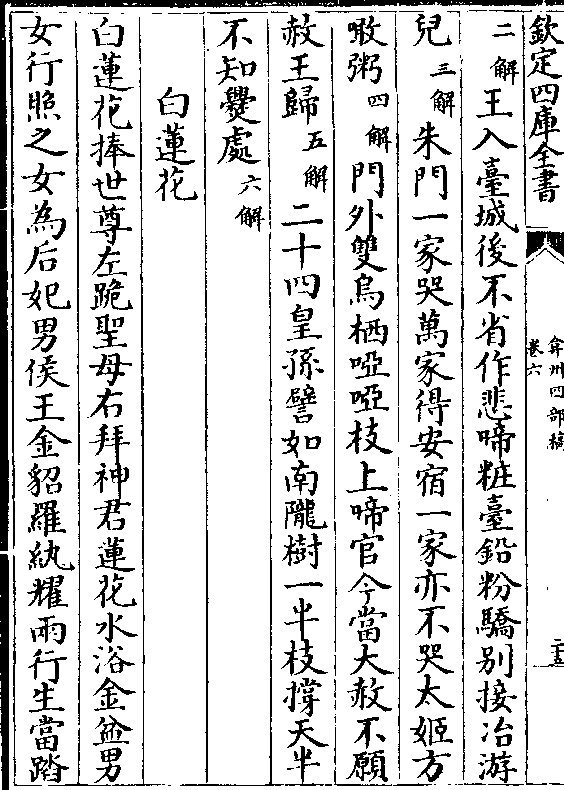 欽定四庫全書
弇州四部稿
卷六
二十五
二解王入臺城後不省作悲啼粧臺鉛粉驕別接冶游
兒三解朱門一家哭萬家得安宿一家亦不哭太姬方
啾粥四解門外雙烏栖啞啞枝上啼官今當大赦不願
赦王歸五解二十四皇孫譬如南隴樹一半枝撐天半
不知㸑處六解
白蓮花
白蓮花捧世尊左跪聖母右拜神君蓮花水浴金盆男
女行照之女為后妃男侯王金貂羅紈耀兩行生當踏